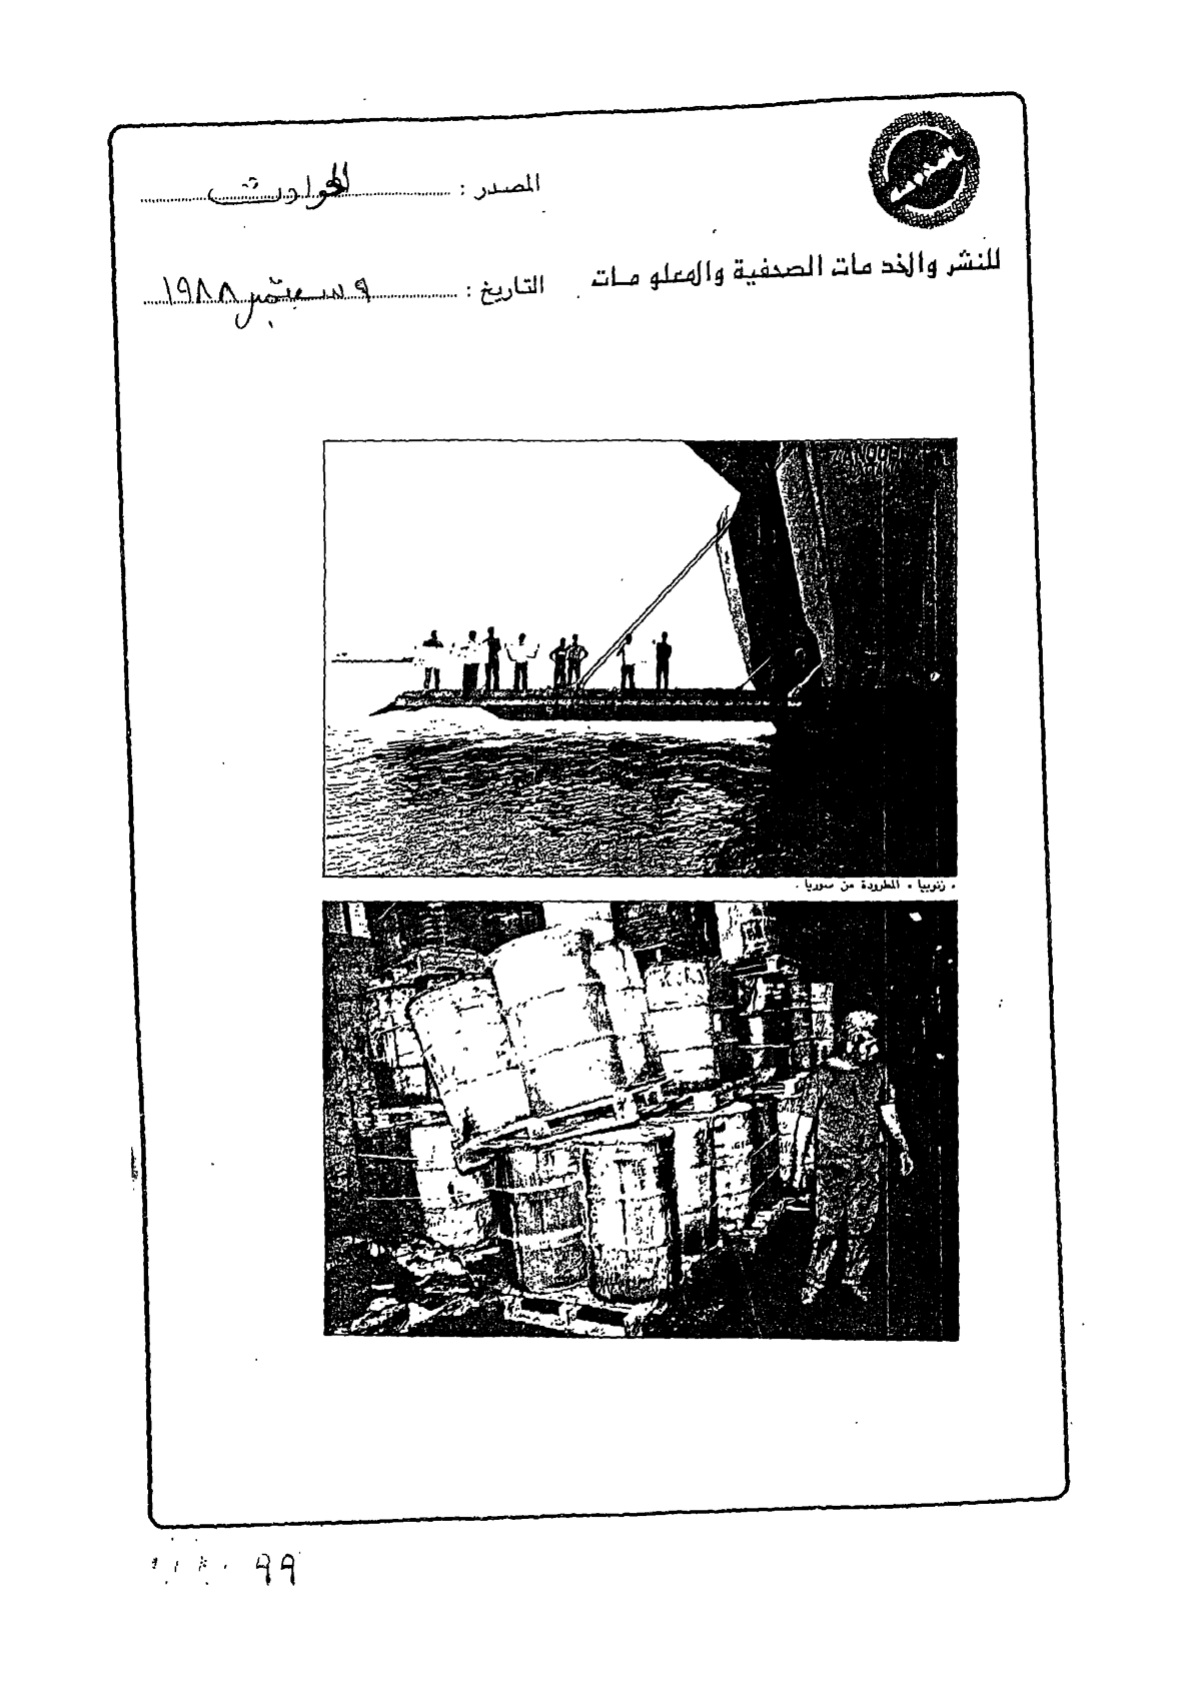 المصدر : الحوادث
للنشر والخدمات الصحفية والمعلومات
التاريخ : ٩ سبتمبر ١٩٨٨
« زنوبيا » المطرودة من سوريا .
٩٩